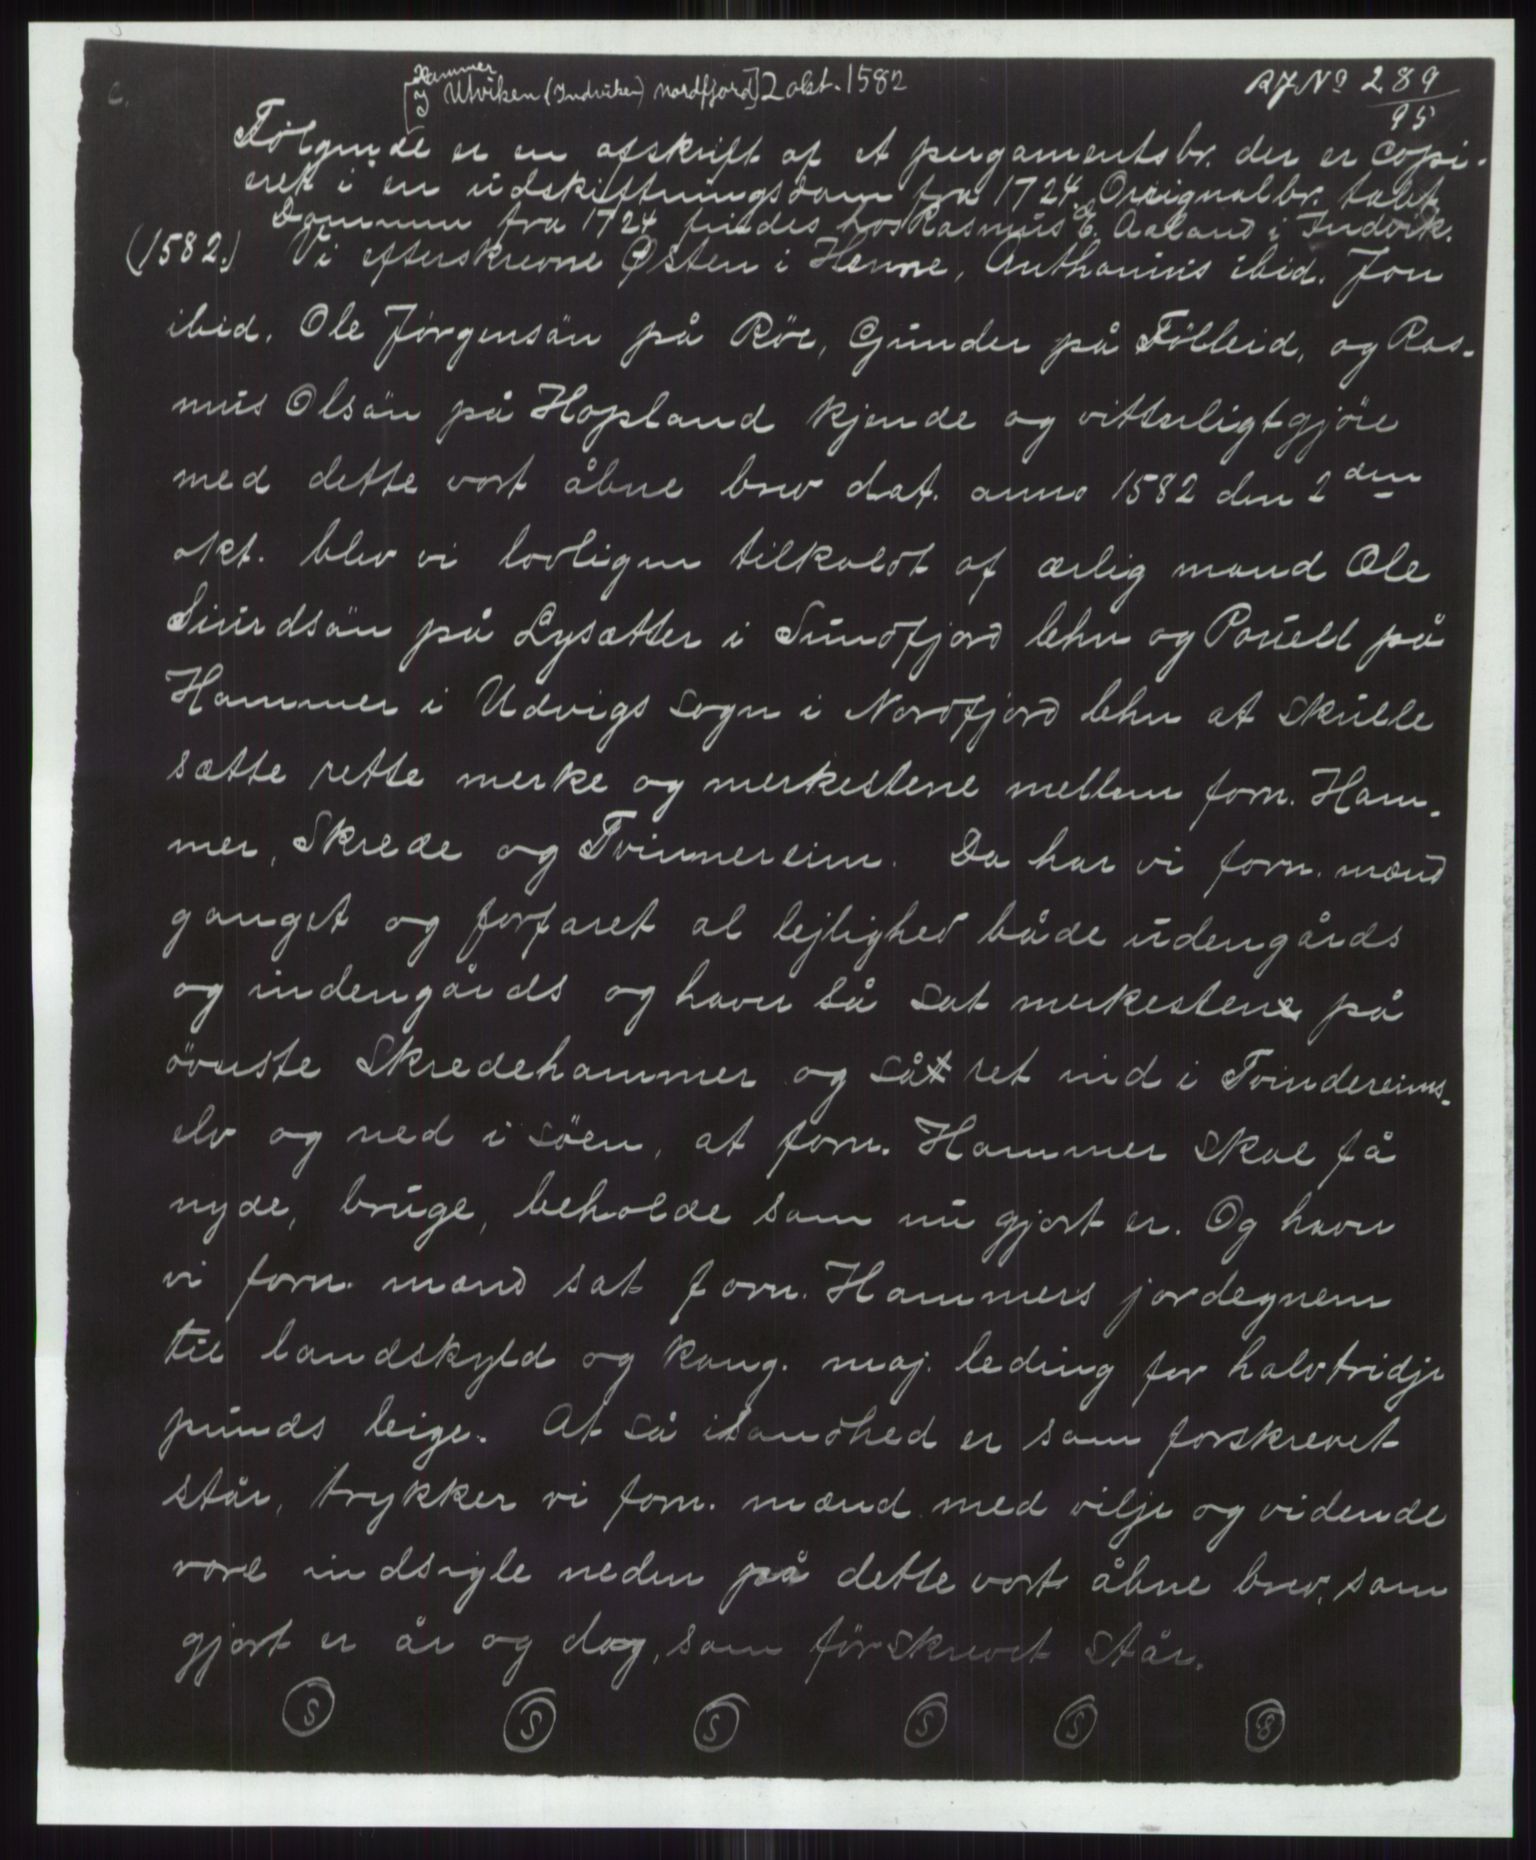 c.
Hammer
[I Utviken (Indviken) Nordfjord] 2 okt. 1582
RJ No 289
95
Følgende er en afskrift af et pergamentsbr. der er copi-
eret i en udskiftningsdom fra 1724. Orriginalbr. tabt
Dommen fra 1724 findes hos Rasmus E. Aaland i Indvik.
(1582.) Vi efterskrevne Østen i Henne, Anthonius ibid. Jon
ibid. Ole Jørgensön på Röe, Gunder på Fölleid, og Ras-
mus Olsön på Hopland kjende og vitterligtgjöre
med dette vort åbne brev dat. anno 1582 den 2den
okt. blev vi lovligen tilkaldt af ærlig mand Ole
Siurdsön på Lysætter i Sundfjord lehn og Pouell på
Hammer i Udvigs sogn i Nordfjord lehn at skulle
sætte rette merke og merkestene mellem forn. Ham-
mer, Skrede og Tvinnereim. Da har vi forn. mænd
ganget og forfaret al lejlighed både udengårds
og indengårds og haver så sat merkestene på
överste Skredehammer og såt ret ind i Tvindereims-
elv og ned i söen, at forn. Hammer skal få
nyde, bruge, beholde som nu gjort er. Og haver
vi forn. mænd sat forn. Hammers jordegnem
til landskyld og kong. maj. leding for halvtridje
punds leige. At så i sandhed er som forskrevet
står, trykker vi forn. mænd med vilje og vidende
vore indsigle neden på dette vort åbne brev, som
gjort er år og dag, som förskrevet står.
S S S S S S